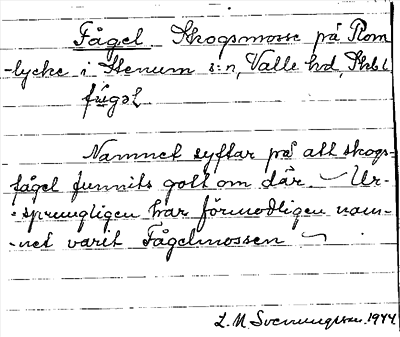 Fågel Skogsmosse på Rom
-lycke i Stenum s:n, Valle hd, Skbl
fúgəl
Namnet syftar på att skogs-
fågel funnits gott om där. — Ur-
-sprungligen har förmodligen nam-
-net varit Fågelmossen —
L. M. Svenungsson 1944